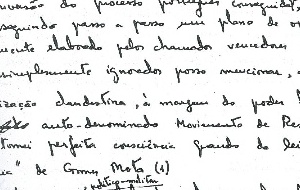 versão do processo português conseguida
seguindo passo a passo um plano de
mente elaborado pelos chamados vencedores
simplesmente ignorados posso mencionar,
ização clandestina, à margem do poder
auto-denominado Movimento de Re
tomei perfeita consciência quando do
" de Gomes Mota (1)
político-militar